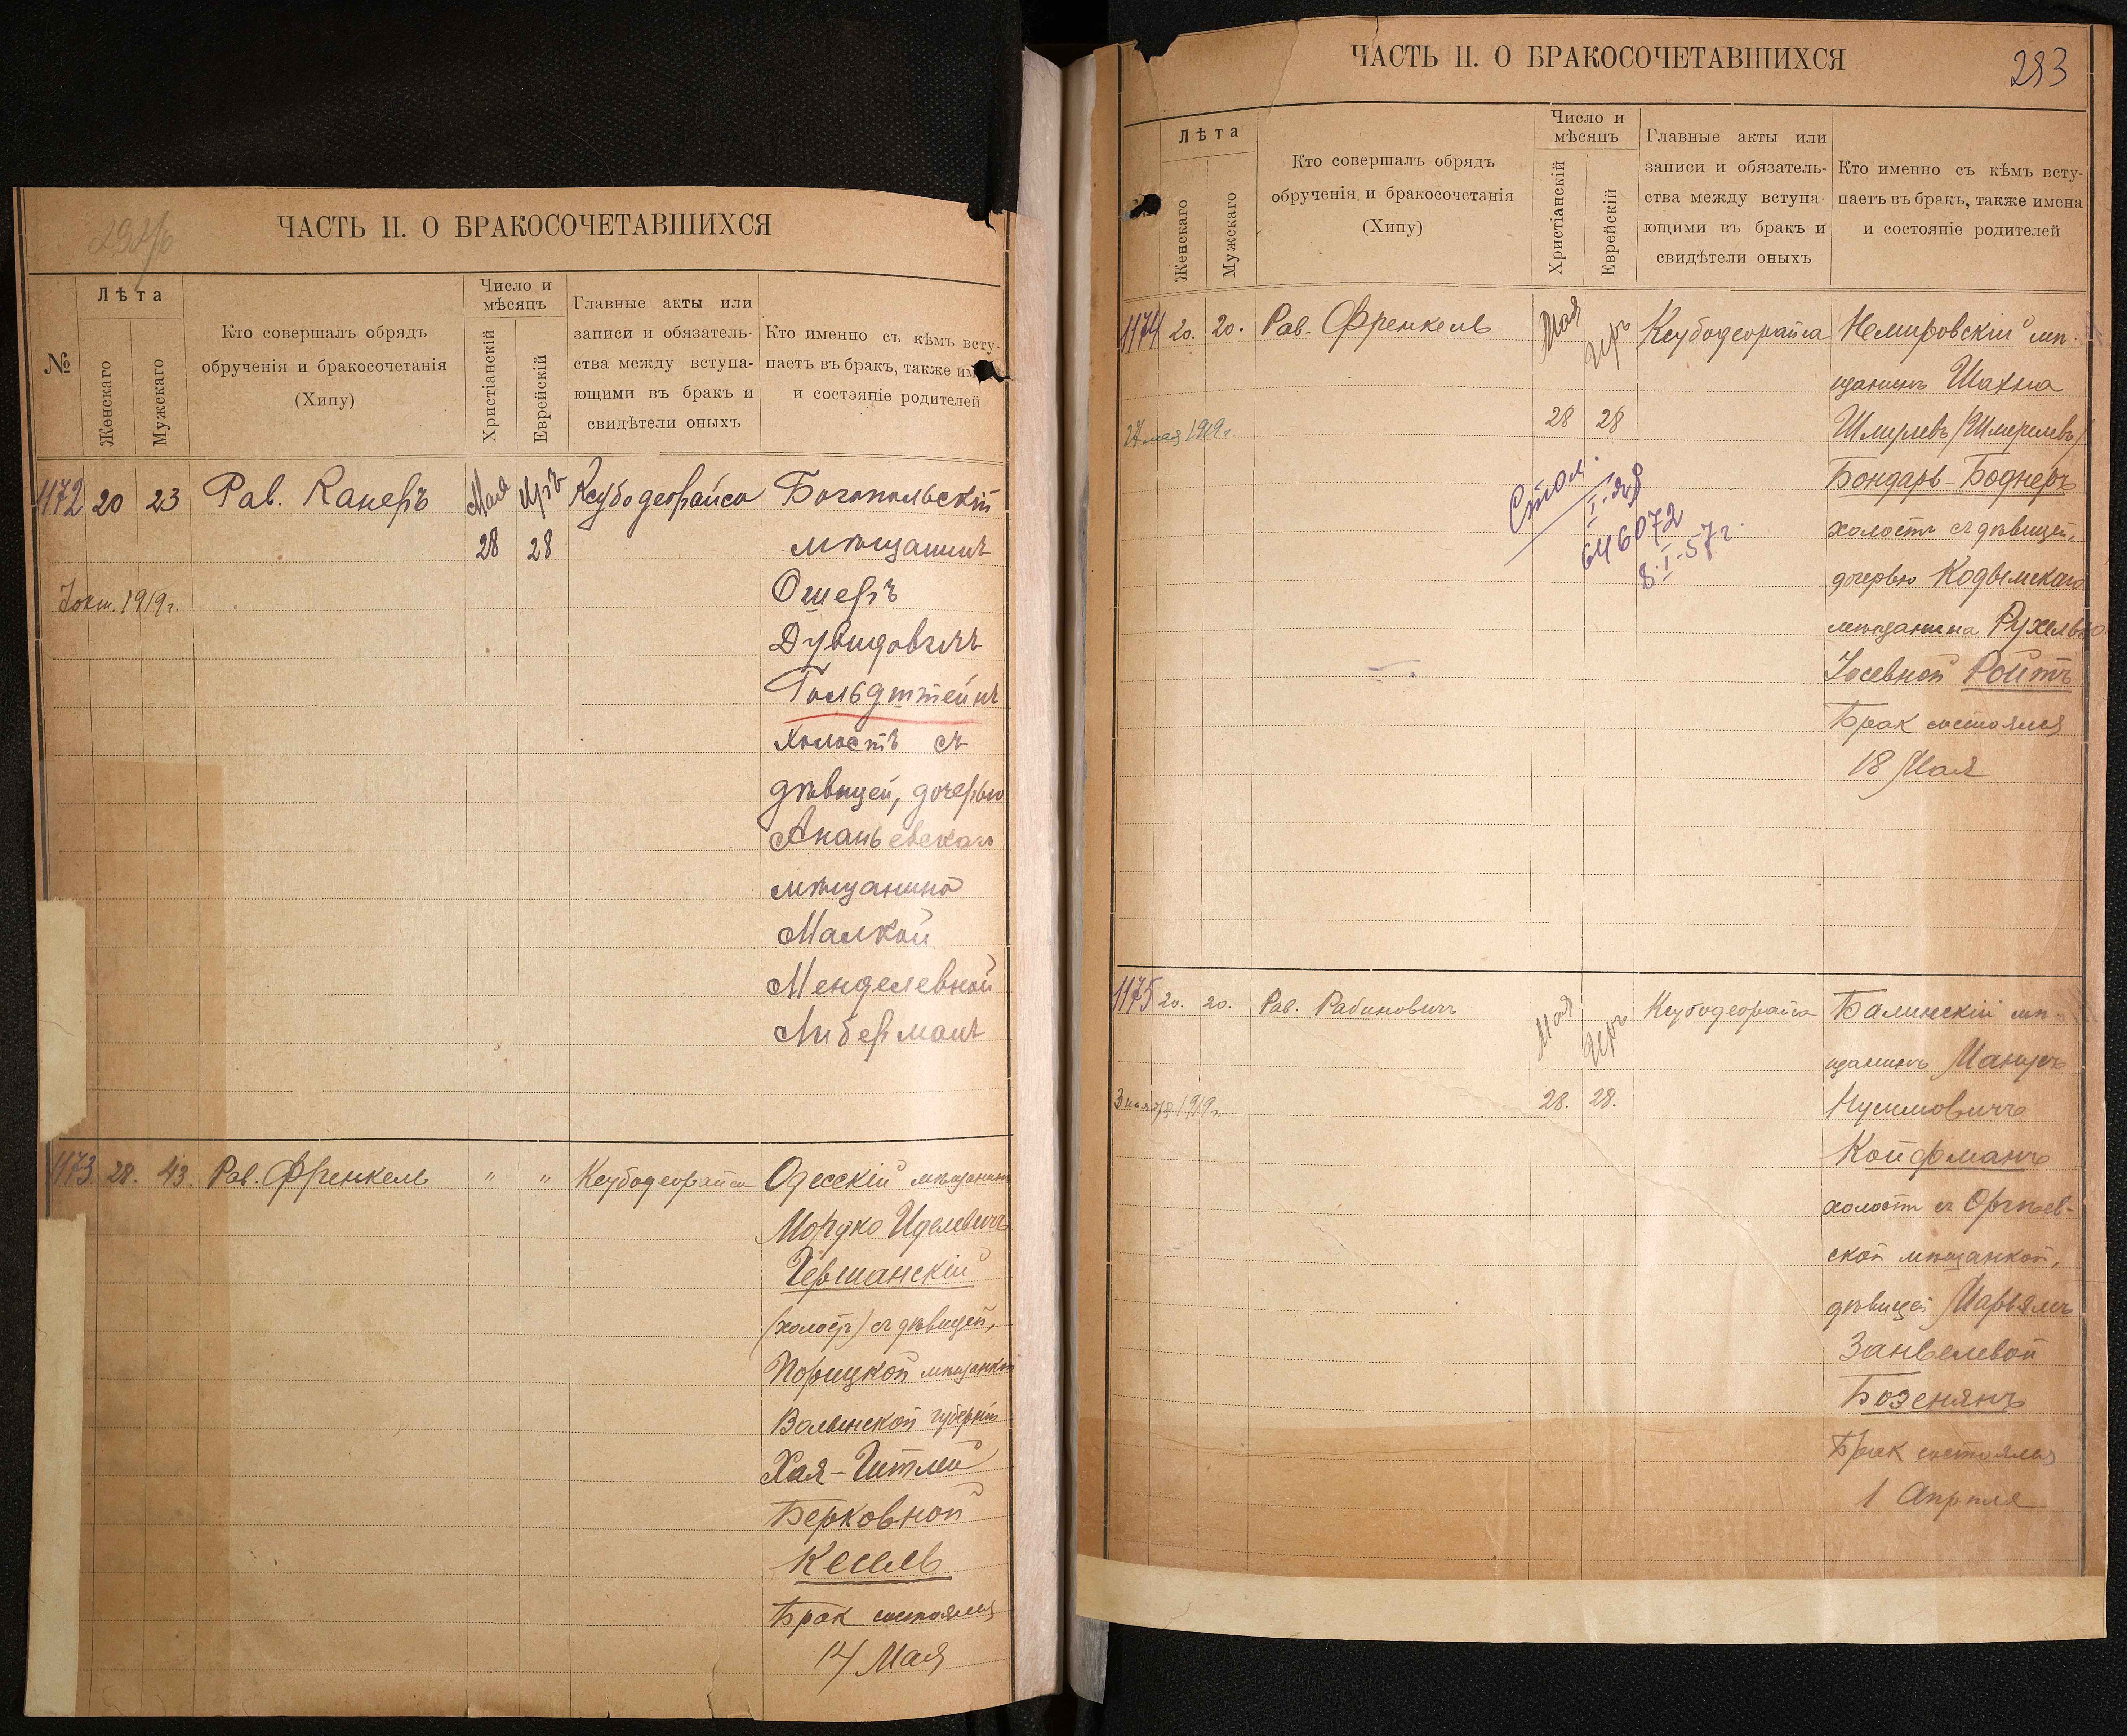 ЧАСТЬ II. О БРАКОСОЧЕТАВШИХСЯ
№
Лѣта
Женскаго
Мужскаго
Кто совершалъ обрядъ
обрученія и бракосочетанія
(Хипу)
Число и
мѣсяцъ
Христіанскій
Еврейскій
Главные акты или
записи и обязатель-
ства между вступа-
ющими въ бракъ и
свидѣтели оныхъ
Кто именно съ кѣмъ всту-
паетъ въ бракъ, также им
и состояніе родителей
1172 20 23 Рав. Канеръ Мая Иръ Ксубодеорайса Богопольскій
28 28 мѣщанинъ
7 окт. 1919 г. Ошеръ
Дувидовичъ
Гольдштейнъ
холостъ съ
дѣвицей, дочерью
Ананьевскаго
мѣщанина
Малкой
Менделевной
Либерманъ
1173. 28. 43. Рав. Френкель " " Ксубодеорайса Одесскій мѣщанинъ
Мордко Иделевичъ
Гершанскій
(холостъ) съ дѣвицей,
Порицкой мѣщанкой
Волынской губерніи
Хая-Гитлей
Берковной
Кесель
Брак состоялся
14 Мая
ЧАСТЬ II. О БРАКОСОЧЕТАВШИХСЯ
283
Лѣта
Женскаго
Мужскаго
Кто совершалъ обрядъ
обрученія и бракосочетанія
(Хипу)
Число и
мѣсяцъ
Христіанскій
Еврейскій
Главные акты или
записи и обязатель-
ства между вступа-
ющими въ бракъ и
свидѣтели оныхъ
Кто именно съ кѣмъ всту-
паетъ въ бракъ, также имена
и состояніе родителей
1174 20. 20. Рав. Френкель Мая Иръ Ксубодеорайса Немировскій мѣ-
щанинъ Шахна
27 мая 1919 г. 28 28 Шмулевъ /Шмерелевъ/
Бондарь-Боднеръ
холостъ съ дѣвицей,
дочерью Кодымскаго
мѣщанина Рухелью
Іосевной Ройтъ
Брак состоялся
18 Мая
646072
8.I.57 г.
1175 20. 20. Рав. Рабиновичъ Мая Иръ Ксубодеорайса Балинскій мѣ-
щанинъ Манусъ
1919 г. 28. 28. Нусимовичъ
Койфманъ
холостъ съ Оргѣев-
ской мѣщанкой,
дѣвицей Марьямъ
Занвелевой
Бозенянъ
Брак состоялся
1 Апрѣля